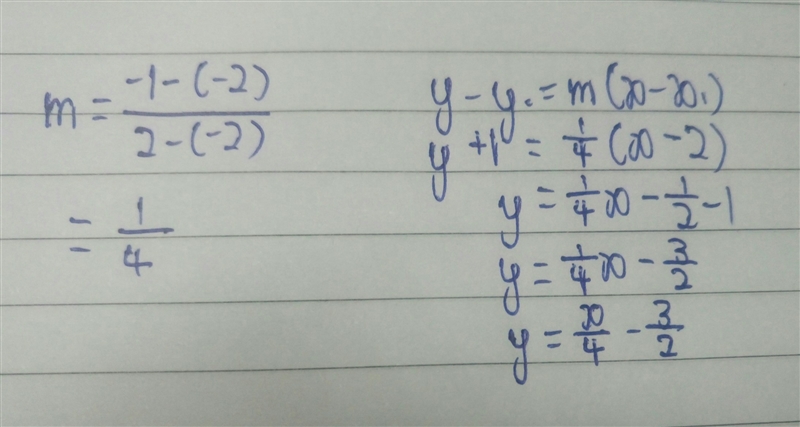 m = -1-(-2) / 2-(-2)
= 1/4
y - y₁ = m(x - x₁)
y + 1 = 1/4(x - 2)
y = 1/4x - 1/2 - 1
y = 1/4x - 3/2
y = x/4 - 3/2